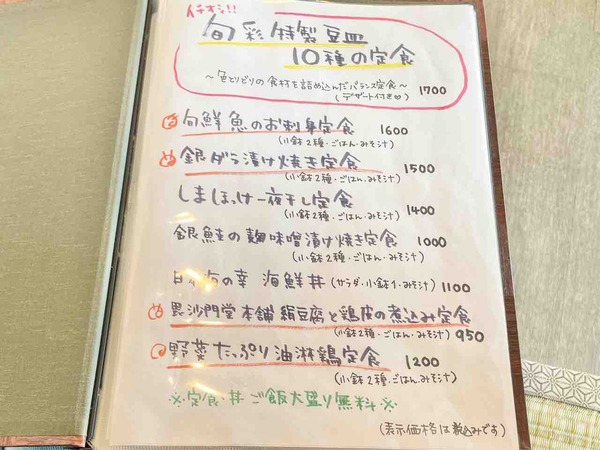 イチオシ!!
旬彩 特製豆皿
10種の定食
～色とりどりの食材を詰め込んだバランス定食～
(デザート付き♡) 1700
旬鮮魚のお刺身定食 1600
(小鉢2種・ごはん・みそ汁)
銀ダラ漬け焼き定食 1500
(小鉢2種・ごはん・みそ汁)
しまほっけ一夜干し定食 1400
(小鉢2種・ごはん・みそ汁)
銀鮭の麹味噌漬け焼き定食 1000
(小鉢2種・ごはん・みそ汁)
日本海の幸 海鮮丼 (サラダ・小鉢1・みそ汁) 1100
毘沙門堂本舗 絹豆腐と鶏皮の煮込み定食
(小鉢2種・ごはん・みそ汁) 950
野菜たっぷり油淋鶏定食 1200
(小鉢2種・ごはん・みそ汁)
※定食・丼 ご飯大盛り無料※
(表示価格は税込みです)